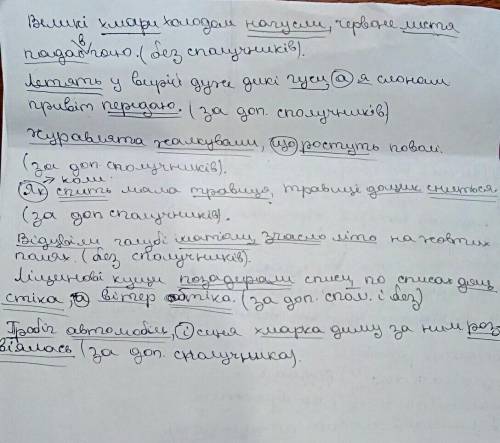 Великі хмари холодом напусли, червоне листя
падає в гаю. (без сполучників).
Летять у вирій дуже дикі гуси, а я слоном
привіт передаю. (за доп. сполучників)
Журавлята жалкували, що ростуть поволі.
(за доп. сполучників).
коли
Як спить мала травиця, травиці дощик сниться.
(за доп сполучників).
Відцвіли голубі платіном, згасло літо на жовтих
полях. (без сполучників).
Ліщинові кущі позадирали списи, по списах дощ
стіка, а вітер тіка. (за доп. спол. і без)
Пробіг автомобіль, і синя хмарка диму за ним роз
віялась (за доп. сполучника).